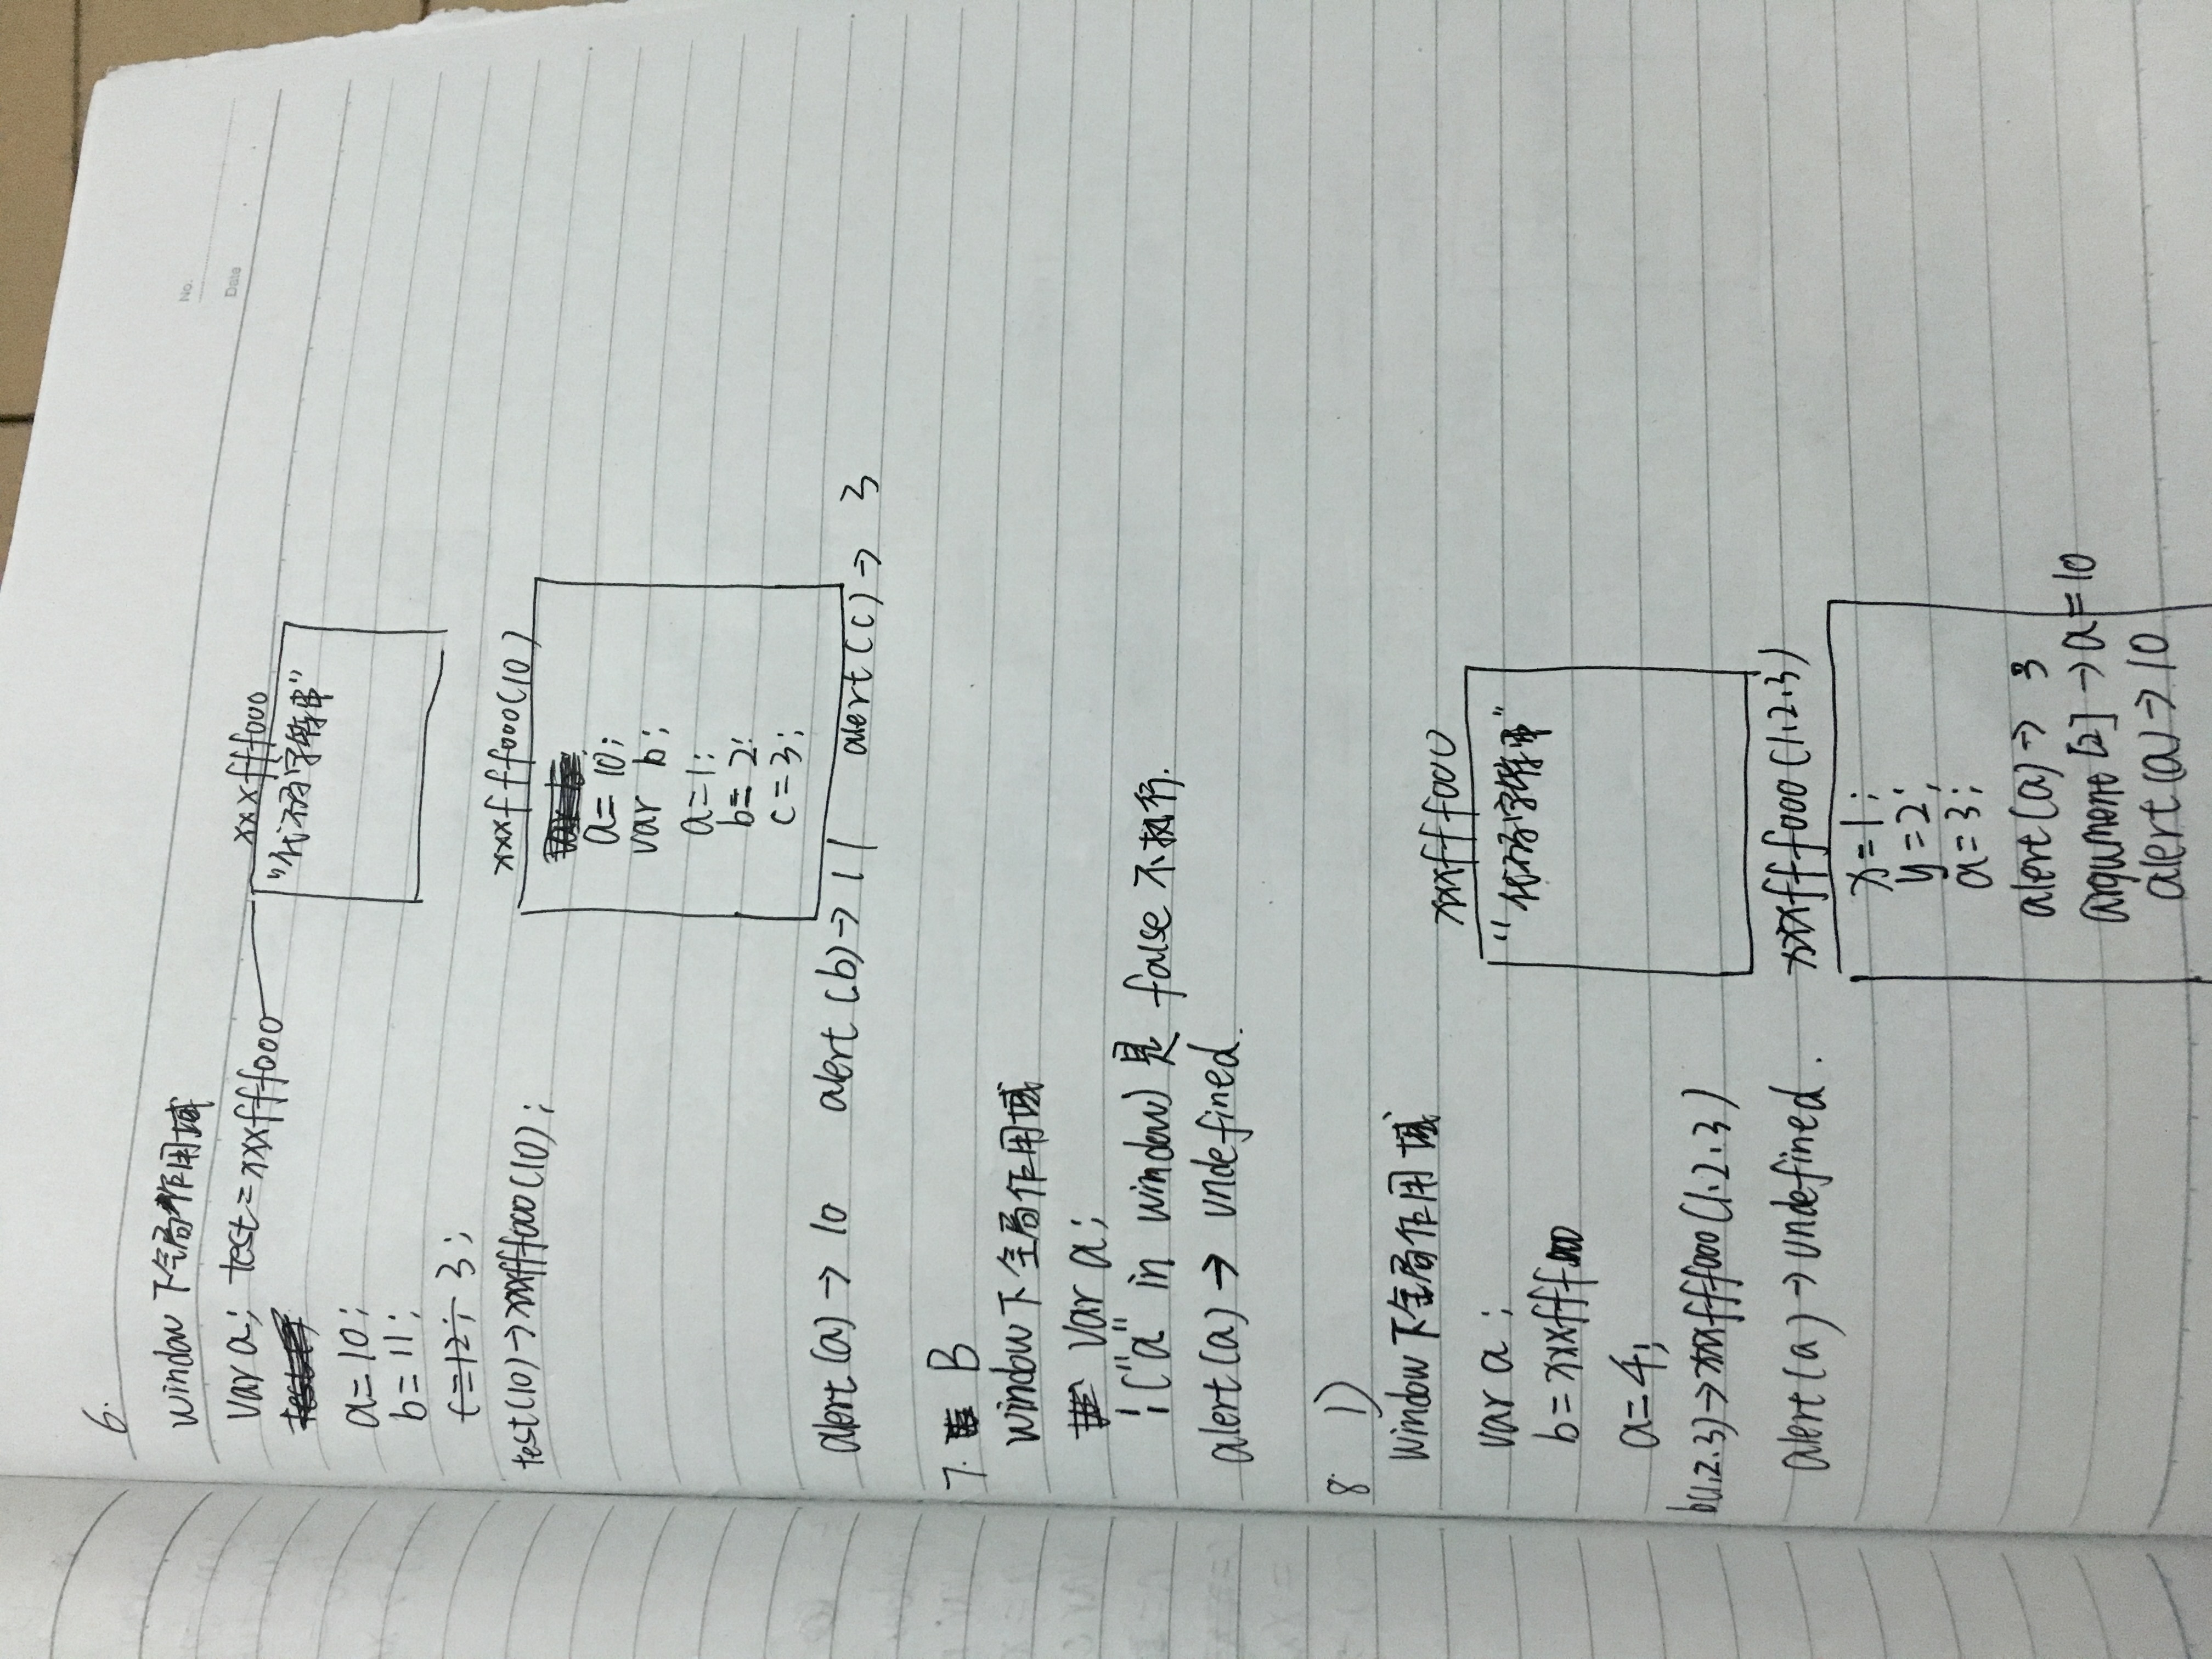 No.
Date
6.
window下全局作用域
var a; test=xxxfff000
xxxfff000
"代码字符串"
a=10;
b=11;
c=12; 3;
test(10)→xxxfff000(10);
xxxfff000(10)
var b;
a=10;
var b;
a=1;
b=2;
c=3;
alert(a)→10 alert(b)→11 alert(c)→3
7. B
window下全局作用域
var a;
!("a" in window)是 false 不执行.
alert(a)→ undefined.
8 1)
window下全局作用域
var a;
b=xxxfff000
a=4;
b(1.2.3)→xxxfff000(1.2.3)
alert(a)→undefined.
xxxfff000
"代码字符串"
xxxfff000(1.2.3)
x=1;
y=2;
a=3;
alert(a)→ 3
argument[2]→a=10
alert(a)→10